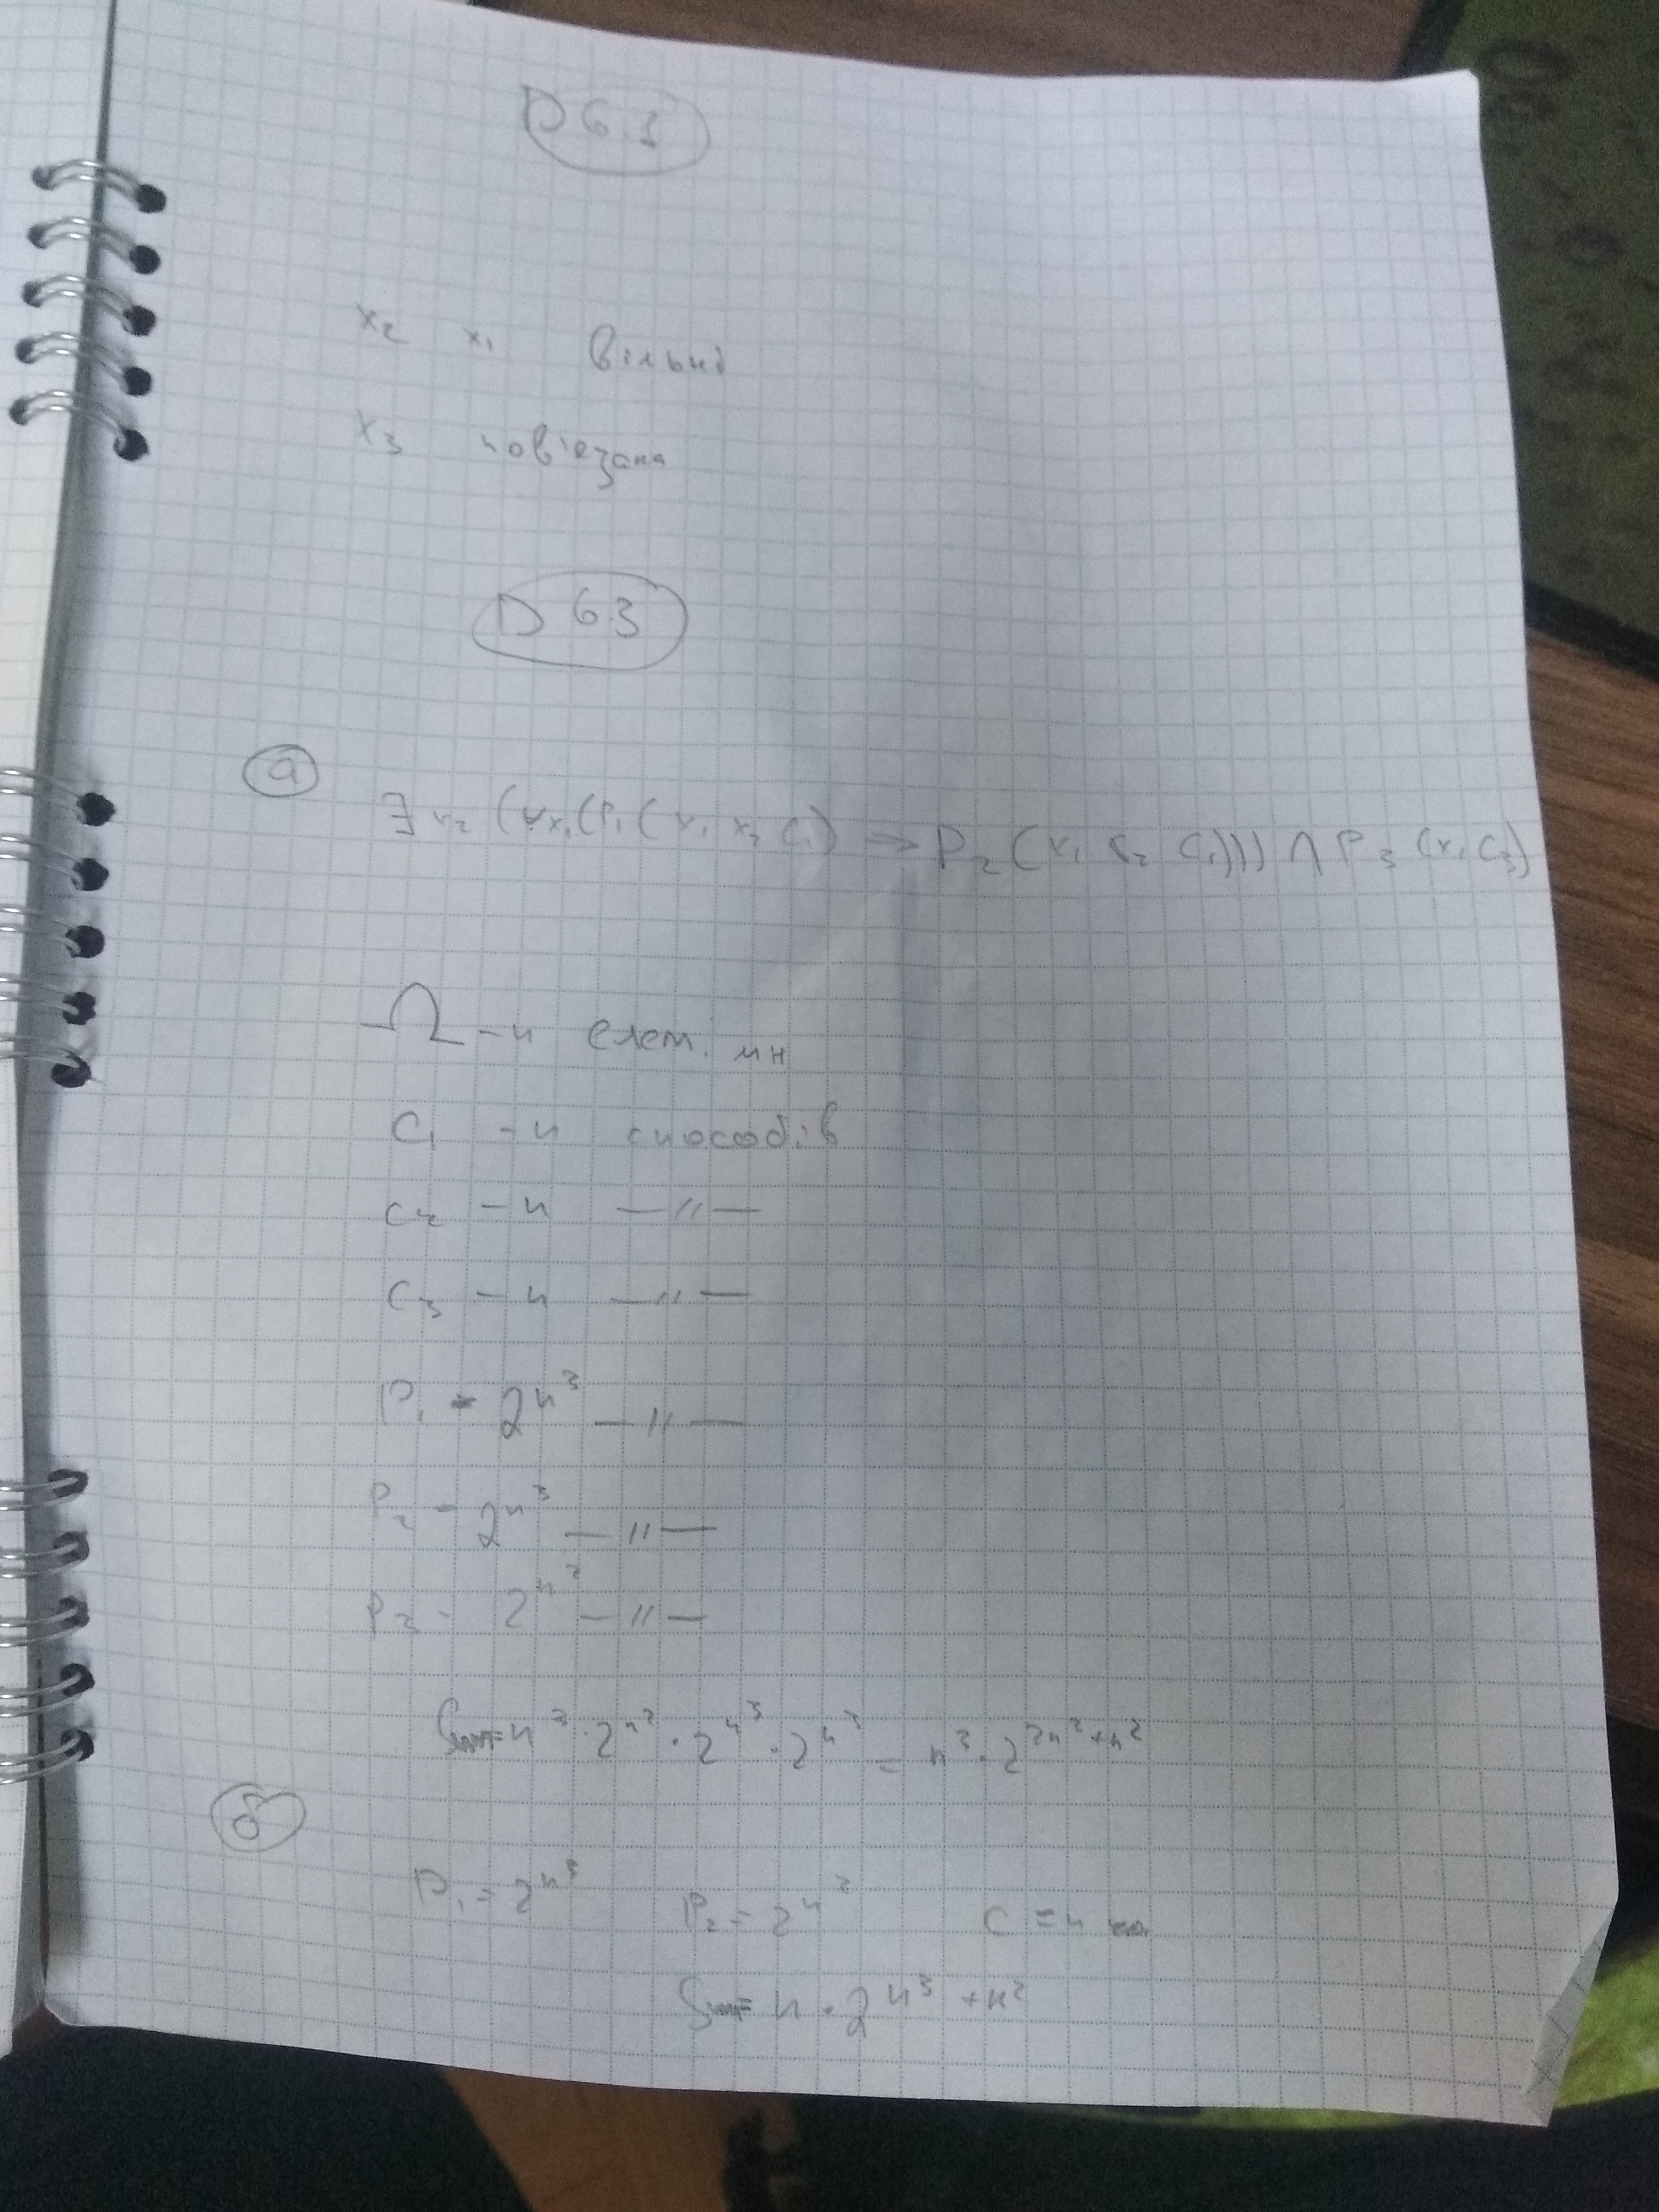 D 6.1
x₂ x₁ вільні
x₃ пов'язана
D 6.3
а
∃x₂ (∀x₁(P₁(x₁ x₂ c₁) => P₂(x₁ c₂ c₁))) ∧ P₃(x₁ c₃)
Ω - n елем. мн
C₁ - n способів
C₂ - n —//—
C₃ - n —//—
P₁ - 2^n^3 —//—
P₂ - 2^n^3 —//—
P₃ - 2^n^2 —//—
Sum= n^3 · 2^n^2 · 2^n^3 · 2^n^3 = n^3 · 2^(2n^3+n^2)
б
P₁ = 2^n^3 P₂ = 2^n^2 C = n
Sum= n · 2^(n^3+n^2)